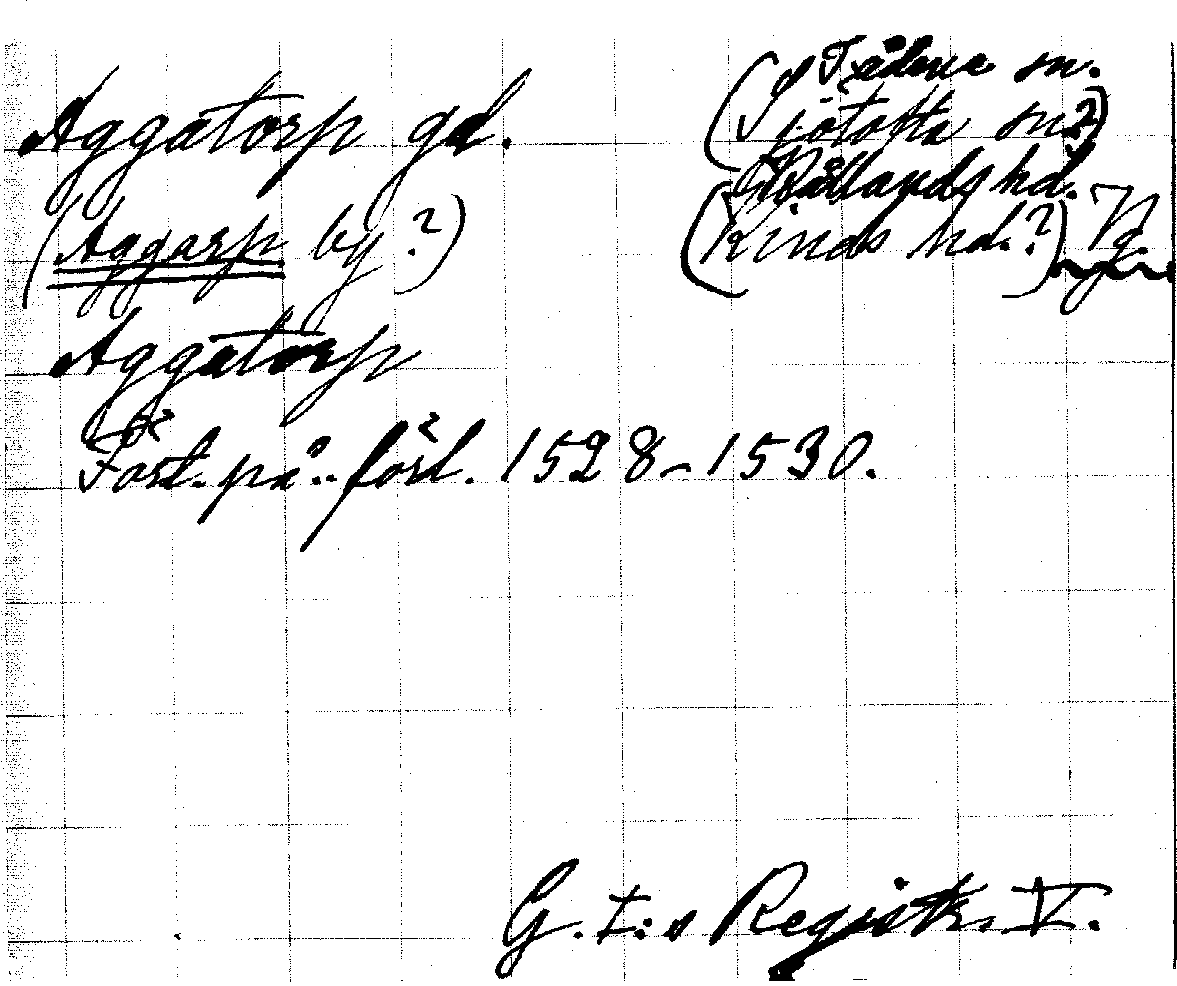 Aggatorp gd.
S Vådene sn.
(Sjötofta sn?)
Vallands hd.
(Aggarp by?)
(Kinds hd.?) Vg.
Aggatorp
Fört. på förl. 1528-1530.
G. I:s Registr. V.